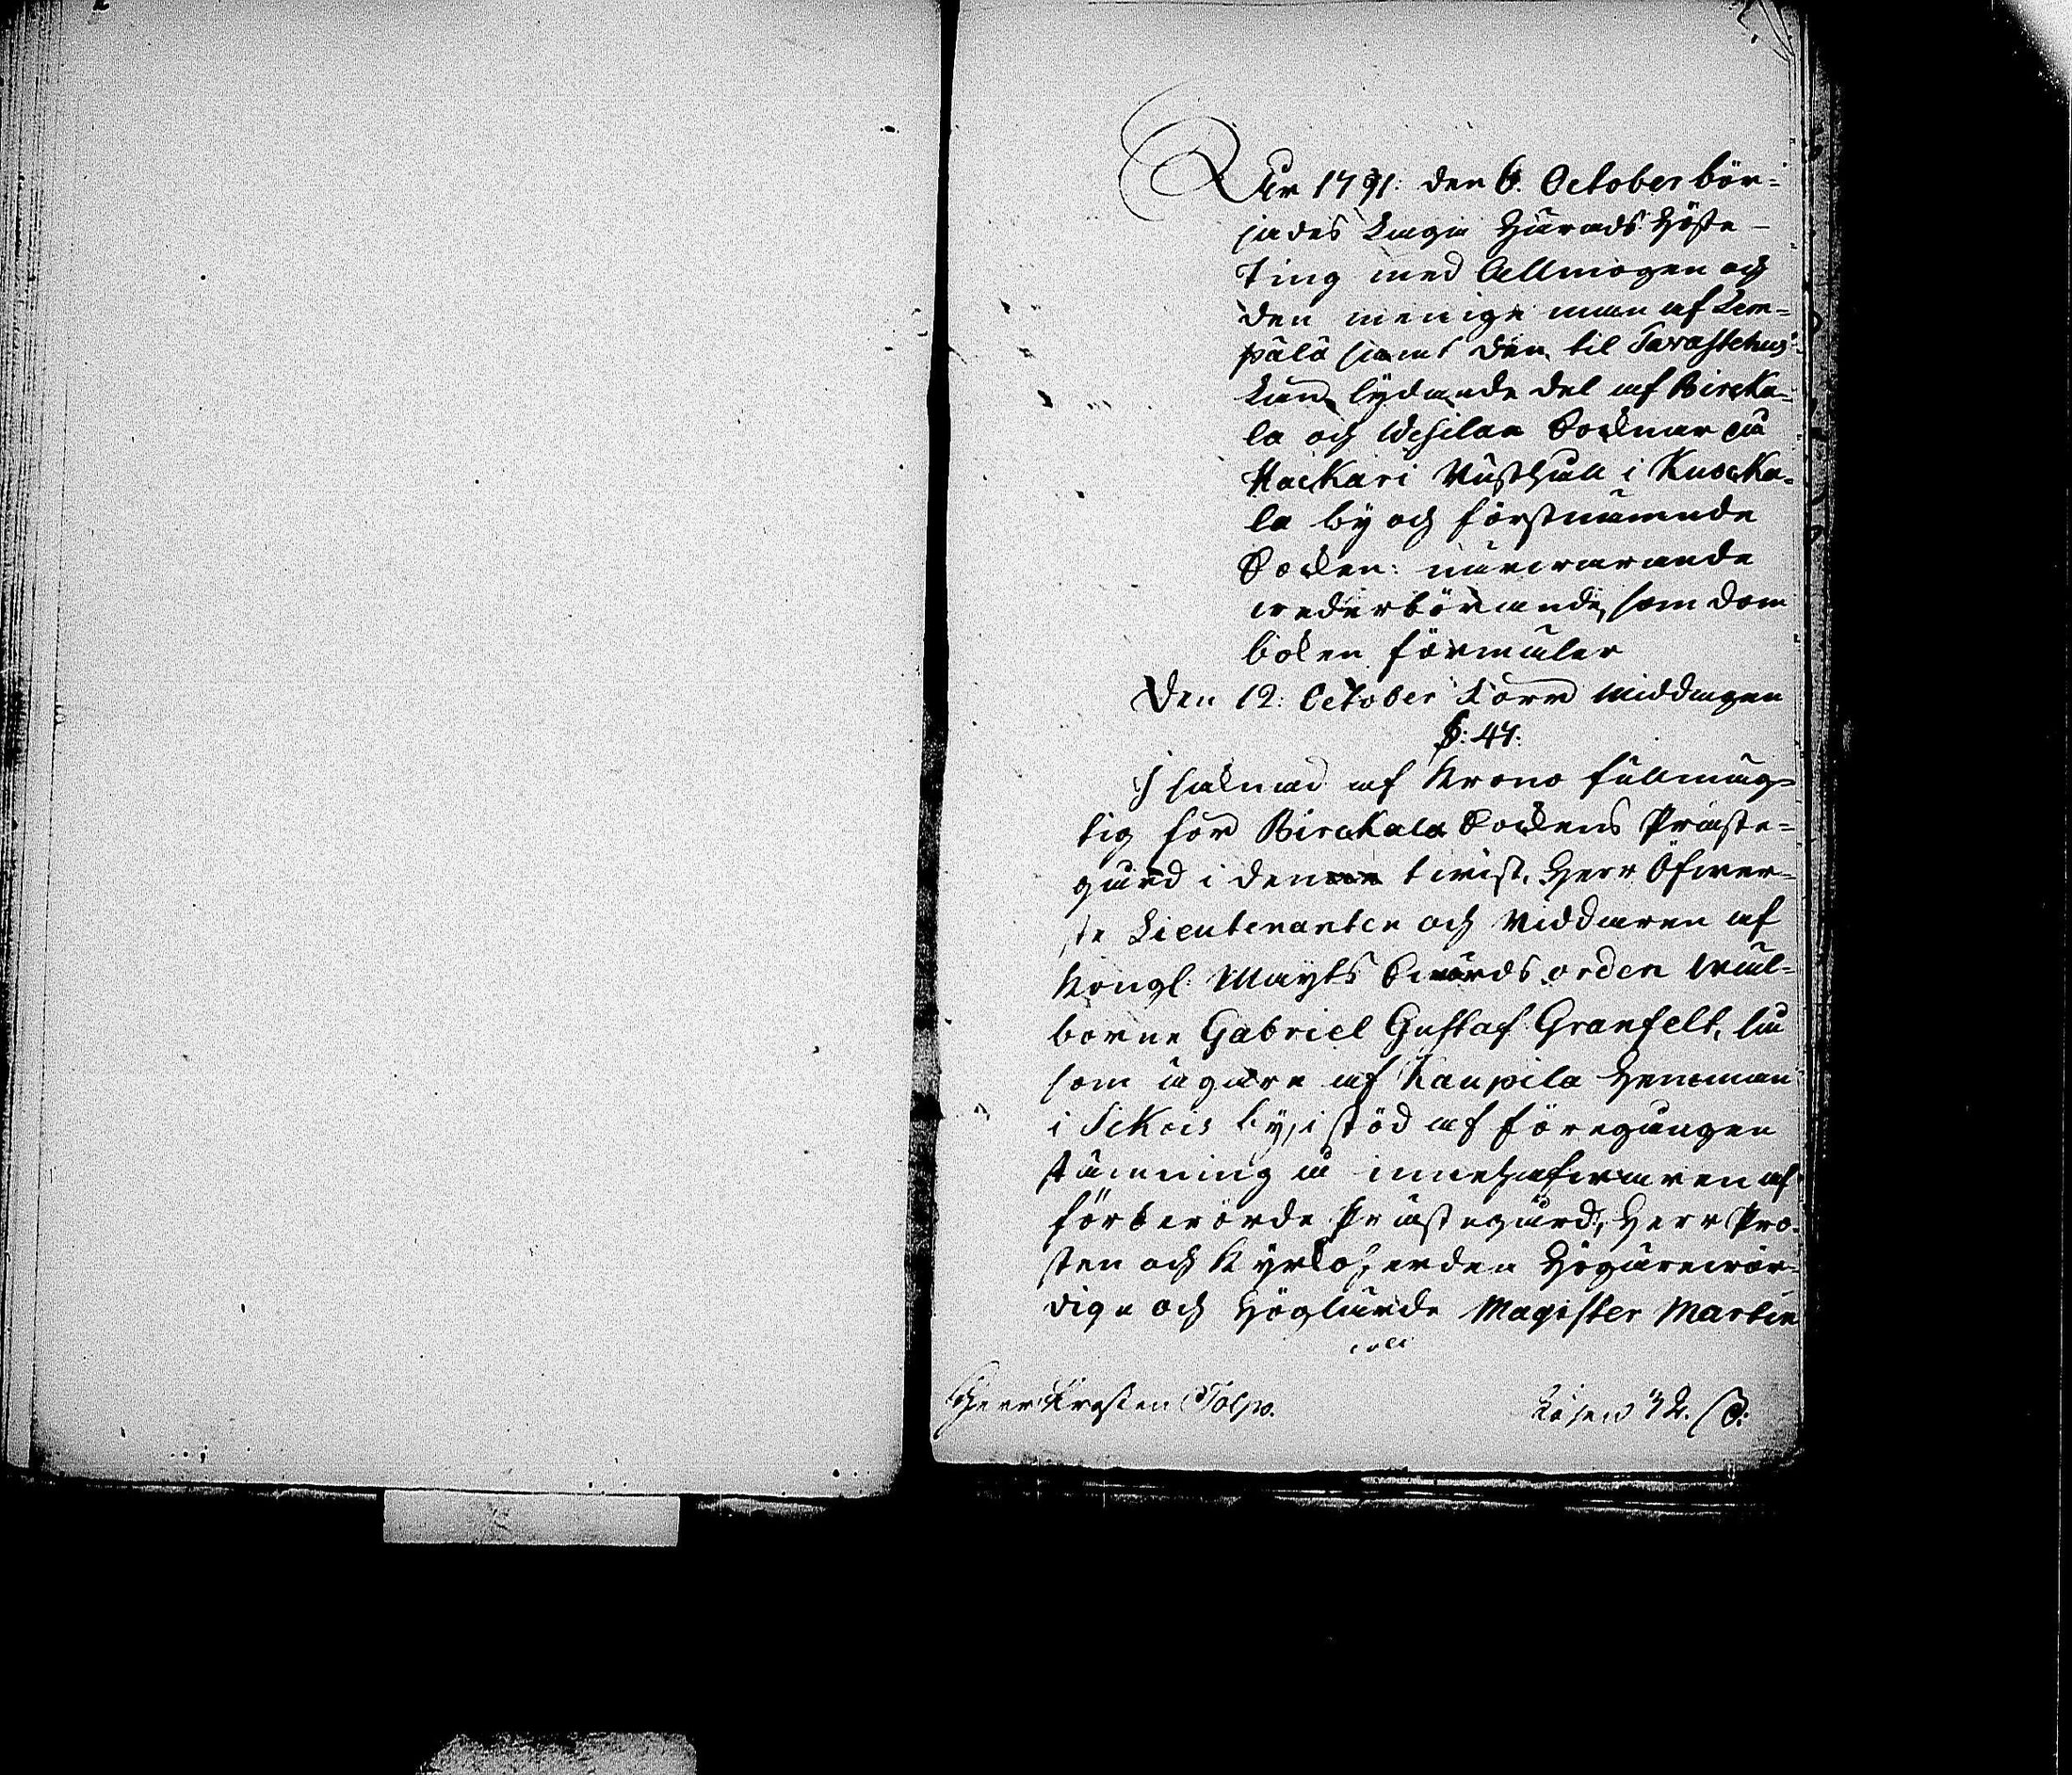 År 1791. den 6. October bör=
jades laga Härads Höste-
Ting med Allmogen och
den menige man af Lem=
pälä samt den til Tavastehus
Län lydande del af Bircka=
la och Wesilax Socknar på
Hackari Rusthåll i Kuocka=
la by och förstnämnde
Socken: närwarande
wederbörande, som dom
boken förmäler
Den 12. October Förmiddagen
§: 47.
I saknad af Krono fullmäg=
tig för Birckala Sockens Präste=
gård i denna twist, Herr Öfwer=
ste Lieutenanten och Riddaren af
Kongl. Mayts Swärds orden wäl=
borne Gabriel Gustaf Granfelt, så
som ägare af Kaupila Hemman
i Sikois by, i stöd af föregången
stämning å innehafwaren af
förberörde Prästegård, Herr Pro=
sten och Kyrkoherden Högärewör=
dige och Höglärde Magister Martin
Herr Prosten Tolpo.
Lösen 32. s: